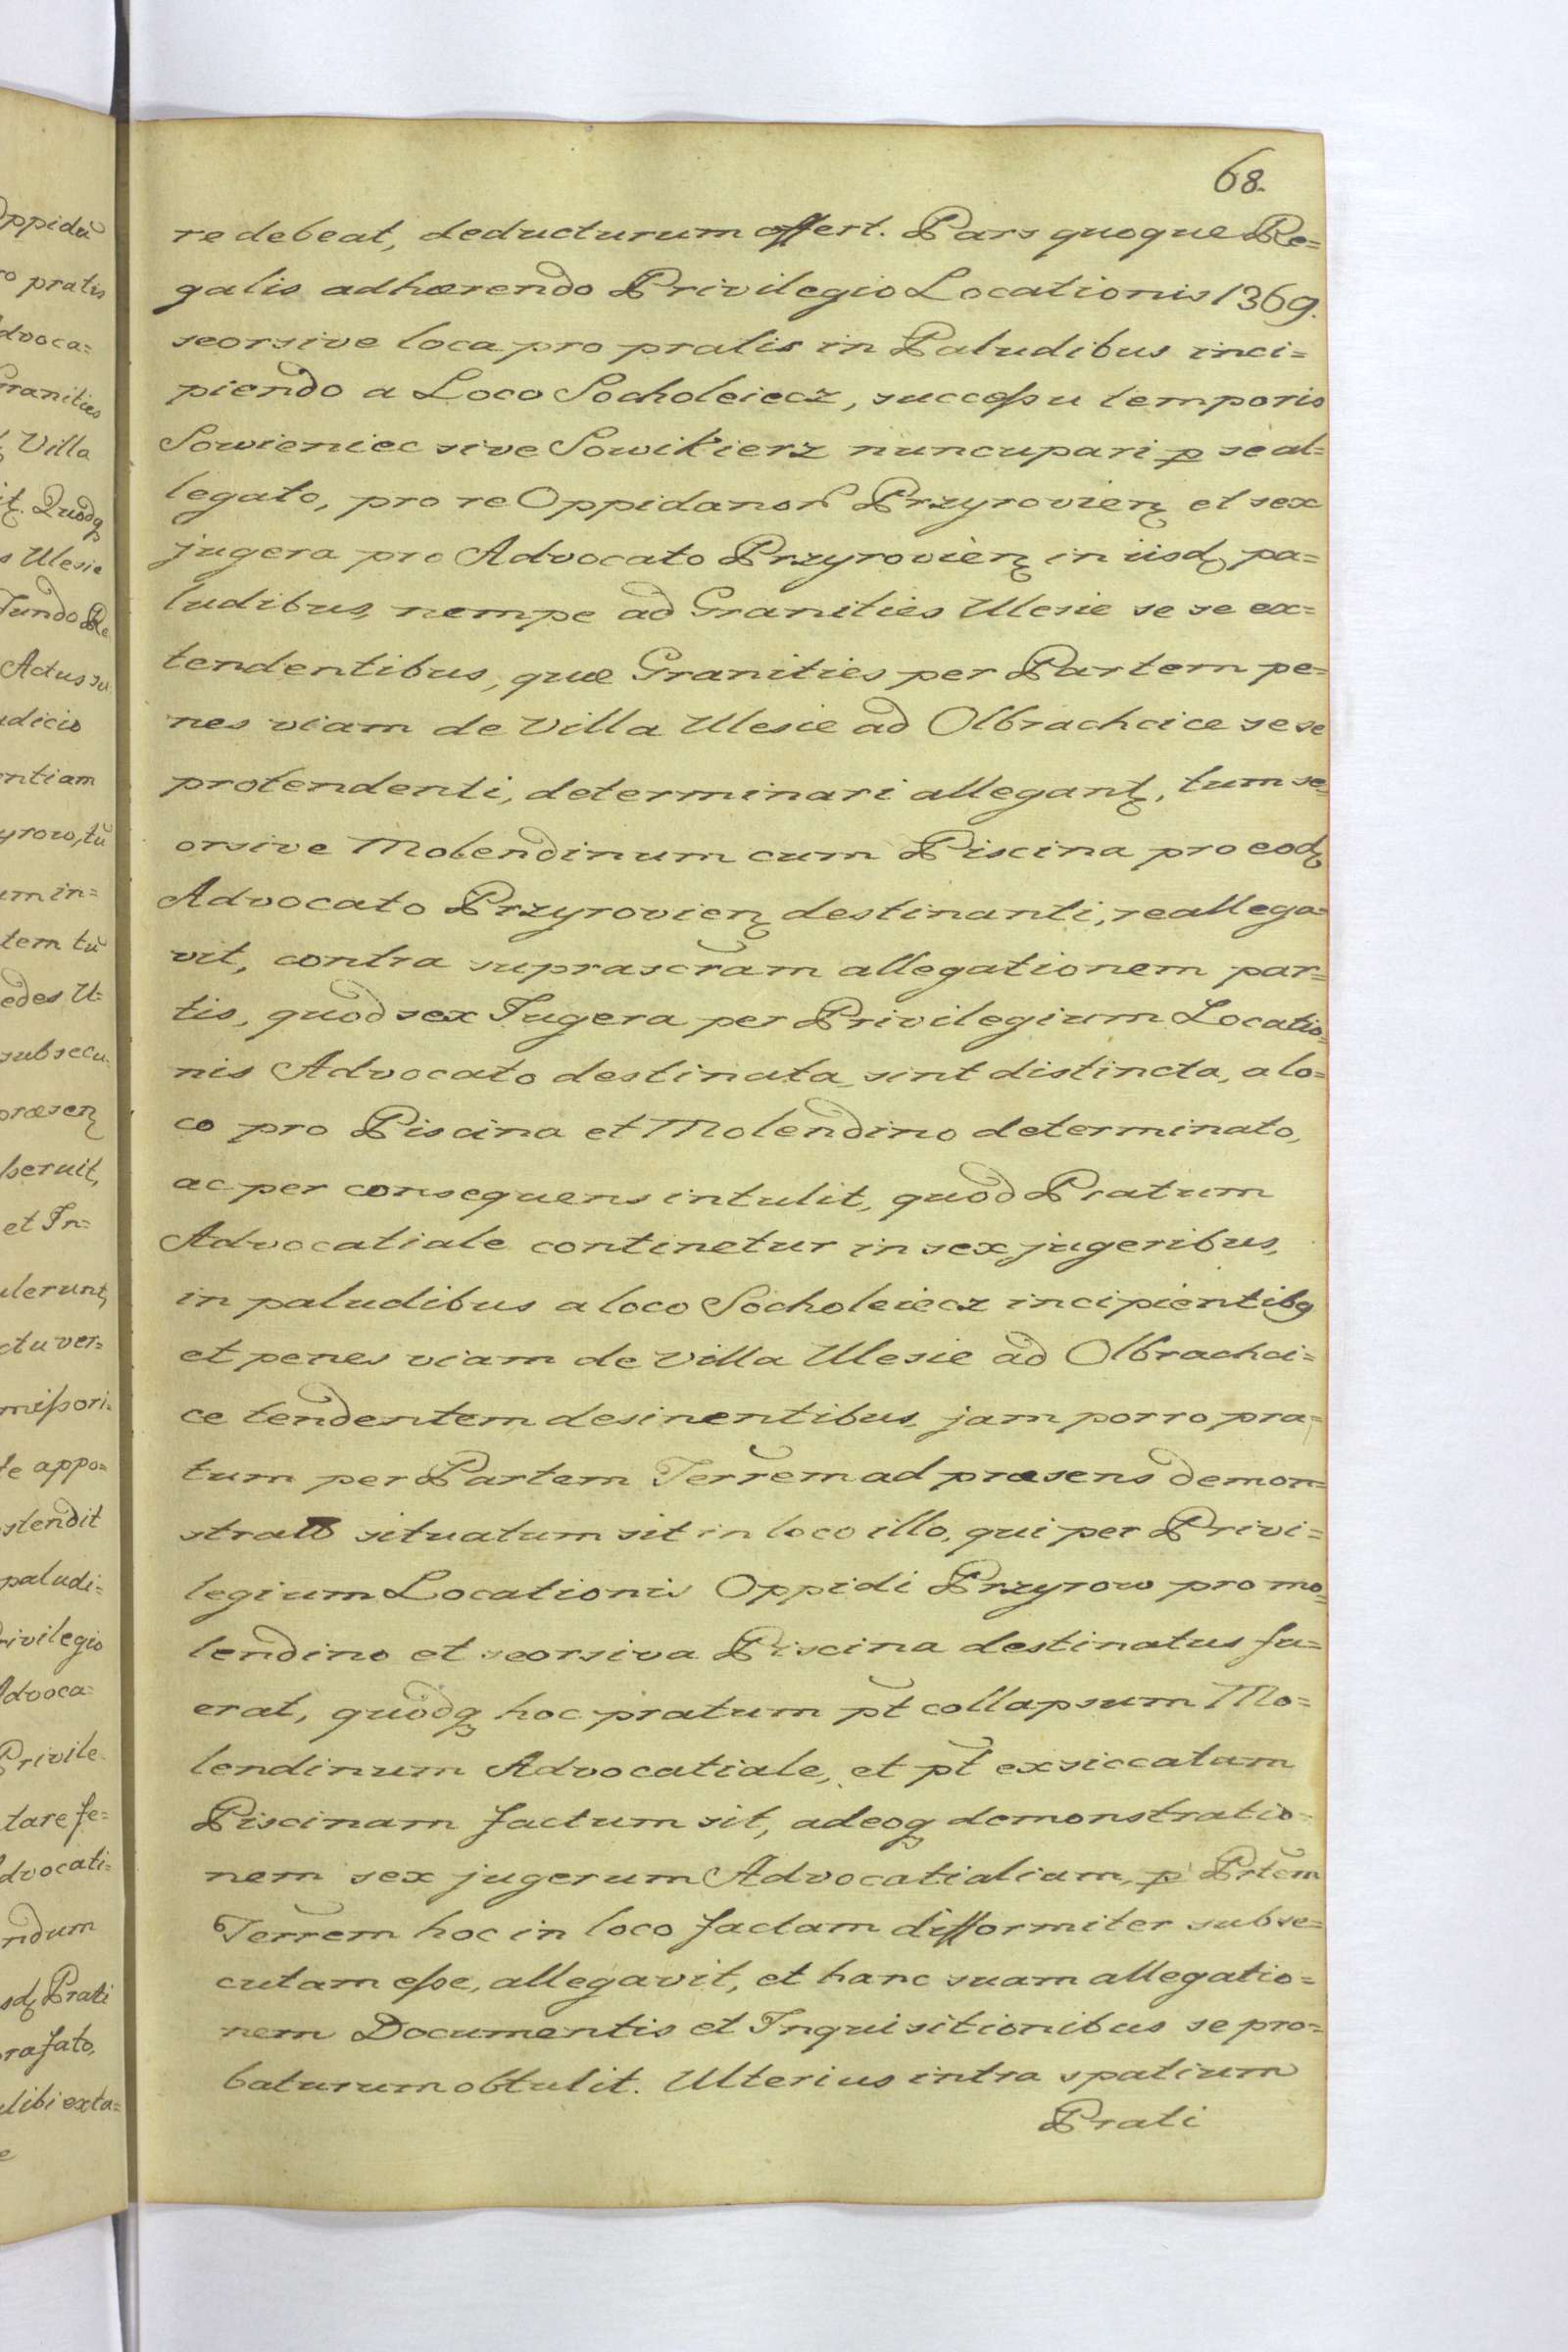 68.
re debeat, deducturum offert. Pars quoque Re=
galis adhærendo Privilegio Locationis 1369.
seorsive loca pro pratis in Paludibus inci=
piendo a Loco Socholeiecz, successu temporis
Sowieniec sive Sowikierz nuncupari p se al=
legato, pro re Oppidanor Przyrovien et sex
jugera pro Advocato Przyrovien in iisd pa=
ludibus, nempe ad Granities Ulesie se se ex=
tendentibus, quæ Granities per Partem pe=
nes viam de Villa Ulesie ad Olbrachcice se se
protendenti, determinari allegant, tum se=
orsive Molendinum cum Piscina pro eod
Advocato Przyrovien destinanti, reallega=
vit, contra suprascram allegationem par=
tis, quod sex Jugera per Privilegium Locatio=
nis Advocato destinata, sint distincta, a lo=
co pro Piscina et Molendino determinato,
ac per consequens intulit, quod Pratum
Advocatiale continetur in sex jugeribus,
in paludibus a loco Socholeiecz incipientibq
et penes viam de Villa Ulesie ad Olbrachci=
ce tendentem desinentibus, jam porro pra=
tum per Partem Terrem ad præsens demon=
strato situatum sit in loco illo, qui per Privi=
legium Locationis Oppidi Przyrow pro mo=
lendino et seorsiva Piscina destinatus fu=
erat, quodq hoc pratum pt collapsum Mo=
lendinum Advocatiale, et pt exsiccatam
Piscinam factum sit, adeoq demonstratio=
nem sex jugerum Advocatialium, p Prtem
Terrem hoc in loco factam difformiter subse=
cutam esse, allegavit, et hanc suam allegatio=
nem Documentis et Inquisitionibus se pro=
baturum obtulit. Ulterius intra spatium
Prati